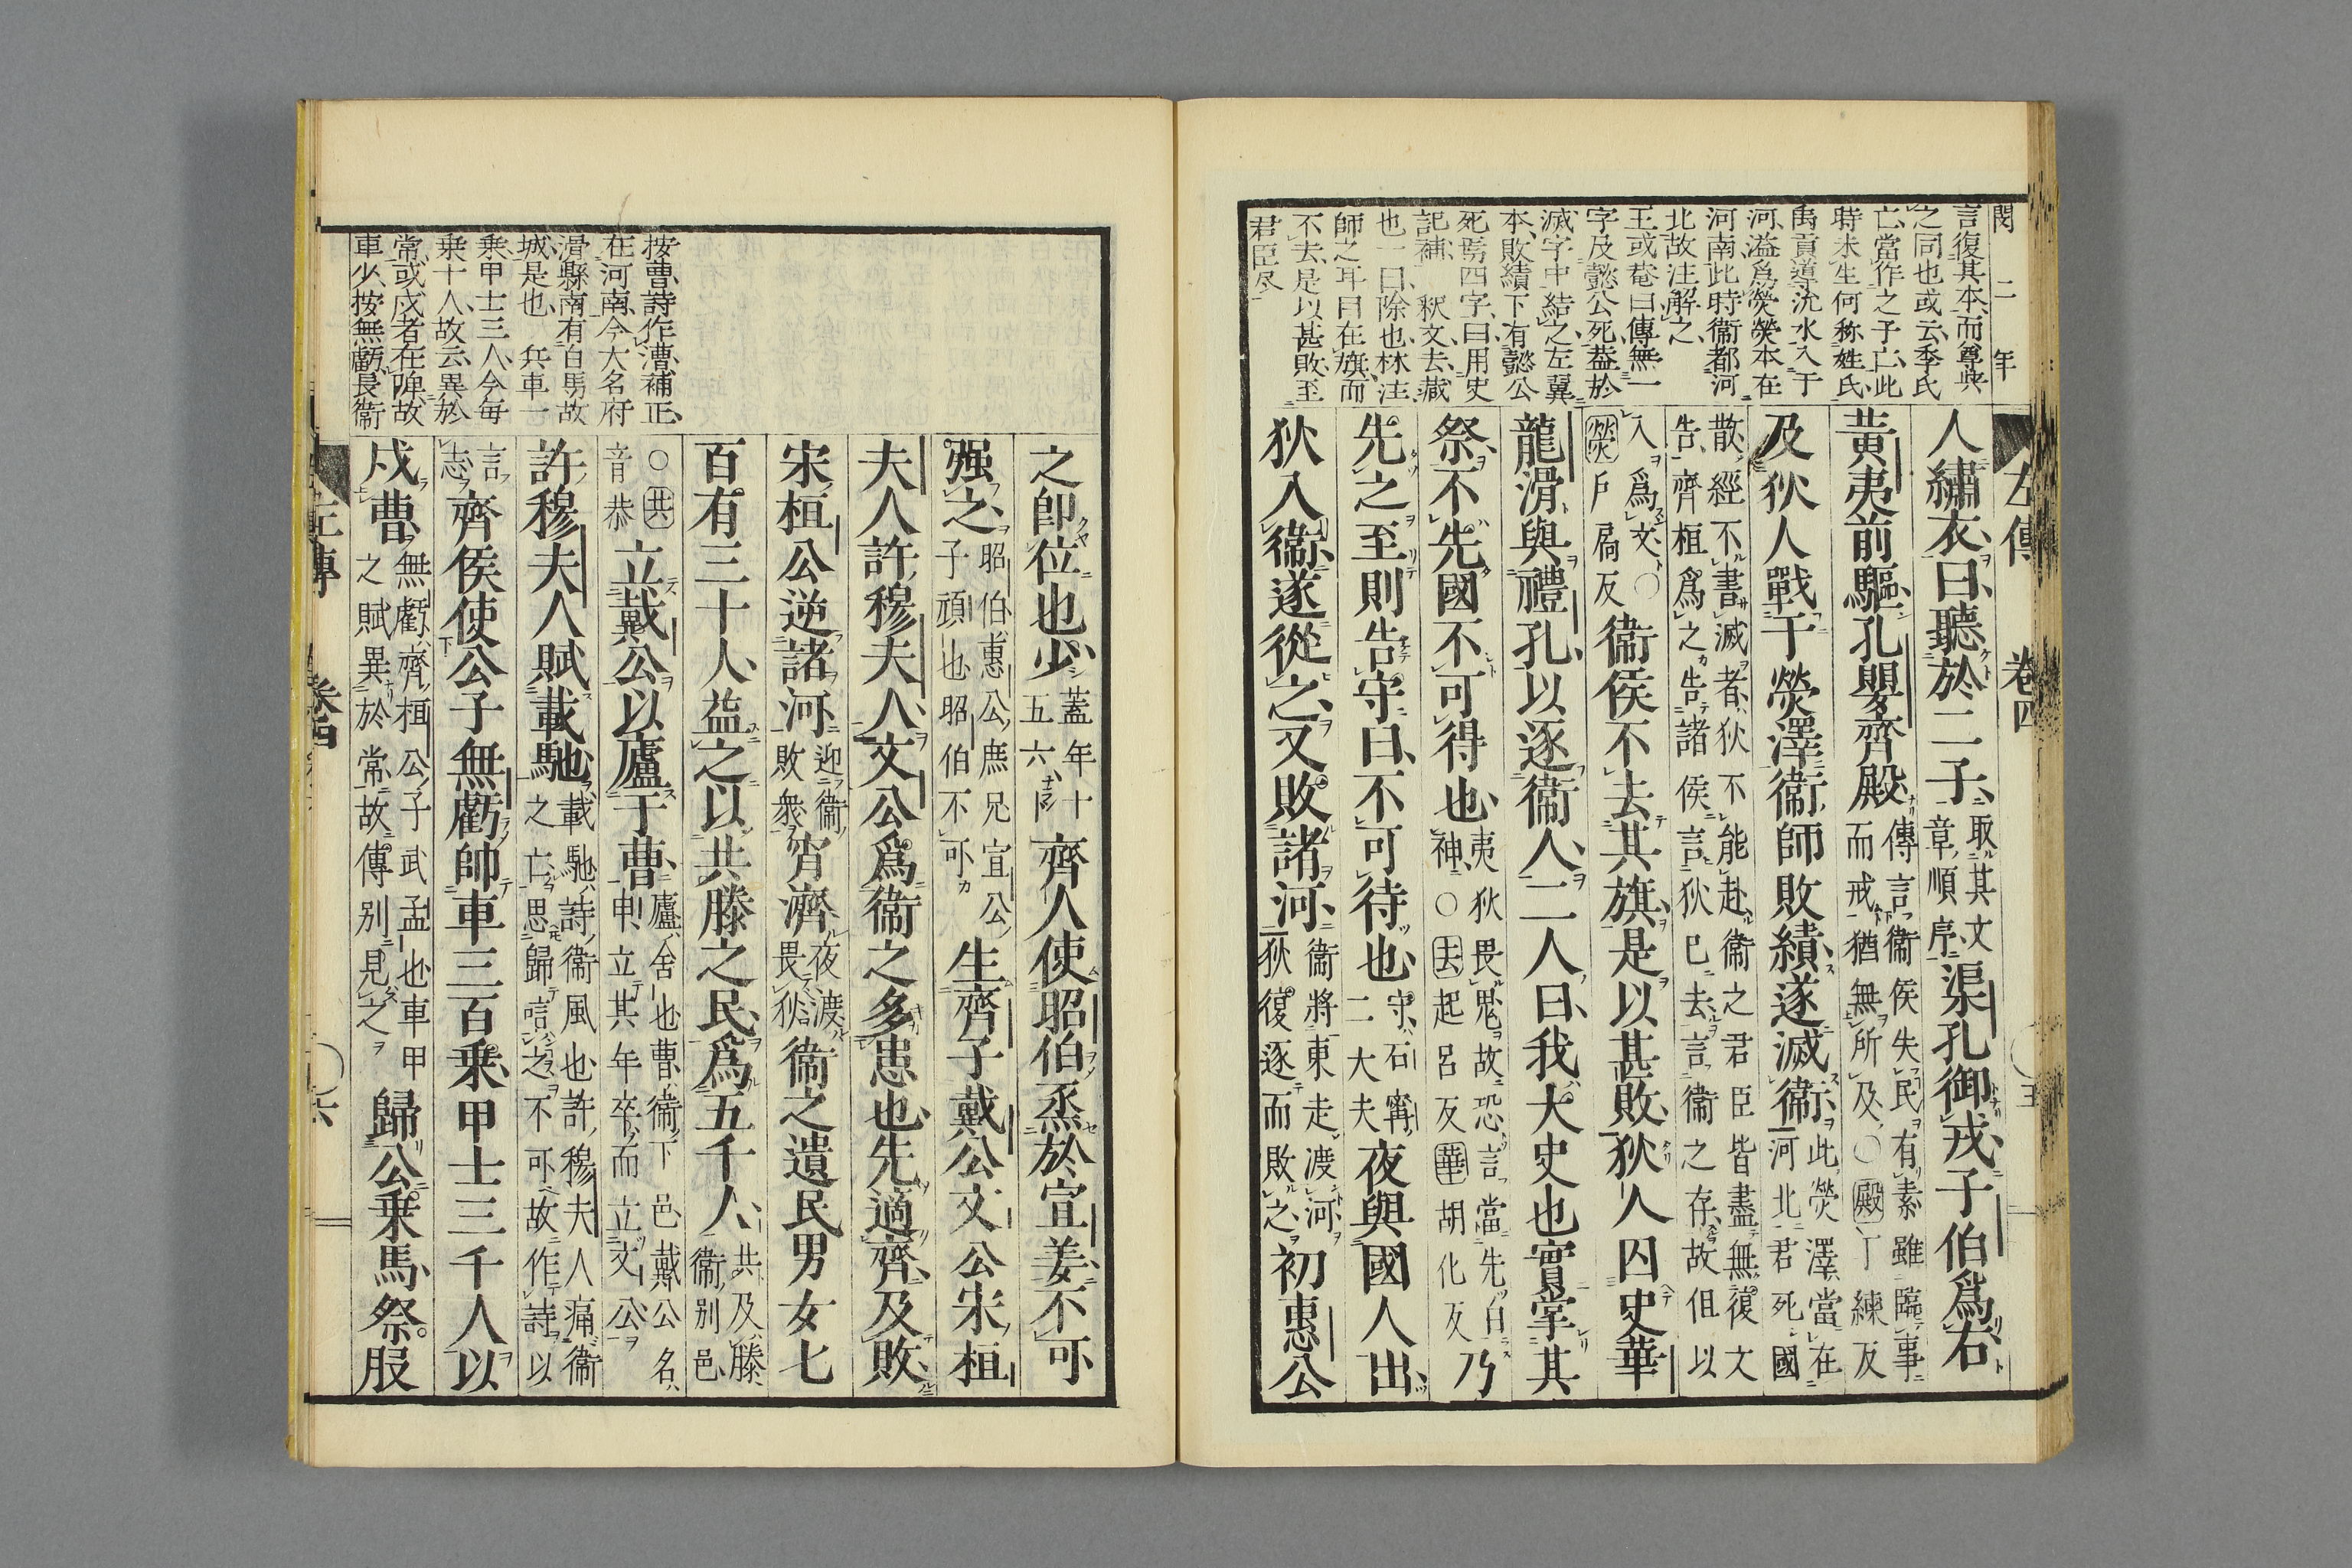 閔二年
言復其本而尊典
之同也或云季氏
亡當作之子亡此
時未生何称姓氏
禹貢導沇水入于
河溢爲熒熒本在
河南此時衛都河
北故注解之
王或菴曰傳無一
字及懿公死葢於
滅字中結之左翼
本敗績下有懿公
死焉四字曰用史
記補　釈文去藏
也一曰除也林注
師之耳目在旗而
不去是以甚敗至
君臣尽
左傳　卷四　五
人繡衣曰聽於二子取其文章順序渠孔御戎子伯爲右
黃夷前驅孔嬰齊殿傳言衛侯失民有素雖臨事而戒猶無所及○殿丁練反
及狄人戰于熒澤衛師敗績遂滅衛此熒澤當在河北君死國
散經不書滅者狄不能赴衛之君臣皆盡無復文告齊桓爲之告諸侯言狄已去言衛之存故但以
入爲文○熒戶扃反衛侯不去其旗是以甚敗狄人囚史華
龍滑與禮孔以逐衛人二人曰我大史也實掌其
祭不先國不可得也夷狄畏鬼故恐言當先白神○去起呂反華胡化反乃
先之至則告守曰不可待也守石甯二大夫夜與國人出
狄入衛遂從之又敗諸河衛將東走渡河狄復逐而敗之初惠公
按曹詩作漕補正
在河南今大名府
滑縣南有白馬故
城是也　兵車一
乘甲士三人今每
乘十人故云異於
常或戍者在陣故
車少按無虧長衛
之卽位也少蓋年十五六齊人使昭伯烝於宣姜不可
强之昭伯惠公庶兄宣公子頑也昭伯不可生齊子戴公文公宋桓
夫人許穆夫人文公爲衛之多患也先適齊及敗
宋桓公逆諸河迎衛敗衆宵濟夜渡畏狄衛之遺民男女七
百有三十人益之以共滕之民爲五千人共及滕衛別邑
○共音恭立戴公以廬于曹廬舍也曹衛下邑戴公名申立其年卒而立文公
許穆夫人賦載馳載馳詩衛風也許穆夫人痛衛之亡思歸唁之不可故作詩以
言志齊侯使公子無虧帥車三百乘甲士三千人以
戍曹無虧齊桓公子武孟也車甲之賦異於常故傳別見之歸公乘馬祭服
左傳　卷四　六